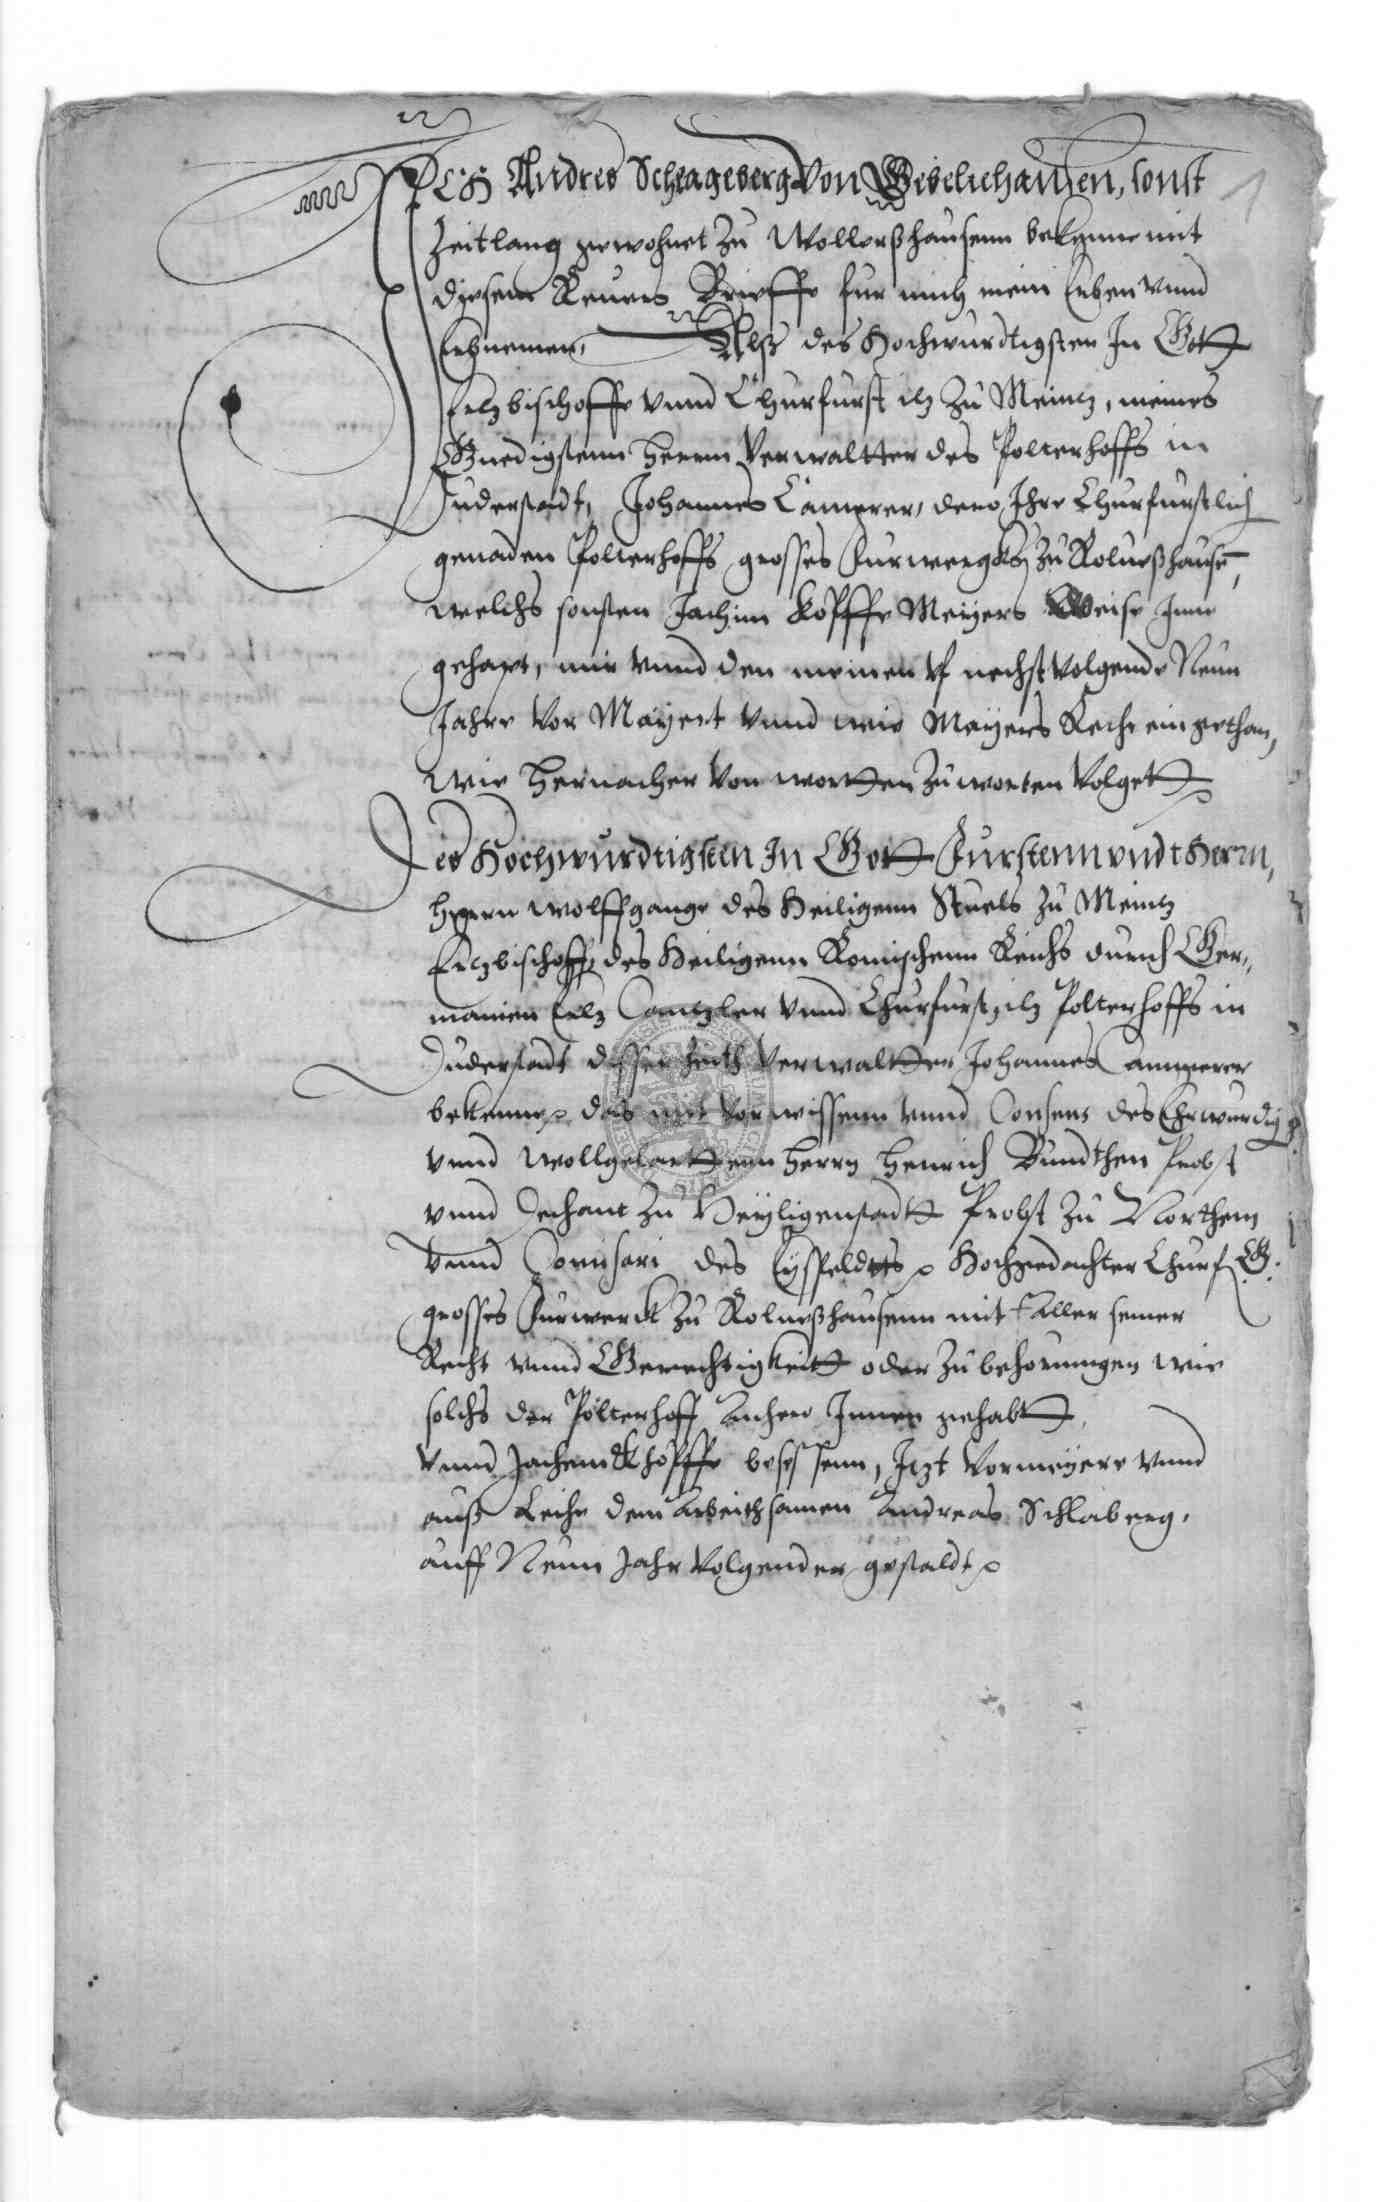 Ich Andres Schlageberg Von Giselichausen, sonst
Zeitlang gewohnet Zu Wollerßhausenn bekenne mit
dyesem Reuers Brieffe fur mich mein Erben vnnd
Erbnemen, Alß des Hochwurdtigsten In Gott
Ertzbischoffe vnnd Churfurst ꝛc Zu Meintz, meines
Gnedigstenn Herrnn Verwaltter des Polterhoffs in
Duderstadt, Johannes Camerer, dero Ihre Churfurstlich
genaden Polterhoffs grosses Furwergk Zu Roleueßhausen,
welchs sonsten Jachim Kopffe Meyers Weise Inne
gehapt, mir vnnd den meinen vf nechst Volgende Neun
Jahre Vor Mayert vnnd wie Meyers Recht ein gethan,
Wie hernacher Von wortten Zu worten Volgett
Des Hochwurdtigsten In Gott Furstenn vndt Herrn,
Herrn Wolffgange des Heiligenn Stuels Zu Meintz
Ertzbischoff, des Heiligenn Romischenn Reichs durch Ger-
manien Ertz Cantzler vnnd Churfurst, ꝛc Polterhoffs in
Duderstadt disser Zeith Verwaltter Johannes Cammerer
bekenne das mit Vorwissenn vnnd Consens des Ehrwurdig
vnnd Wollgelarttenn Herrn Henrich Bundthen Probst
vnnd Dechant Zu Heyligenstadtt Probst Zu Northem
Vnnd Comissari des Eysfeldtts Hochgedachter Churf. G.
grosses Furwerck Zu Roleueßhausenn mit aller seiner
Recht vnnd Gerechtigkeitt oder Zubehorungen wie
solchs der Polterhoff Innen gehabtt
Vnnd Jachem Khopffe besessenn, Itzt Vormeyere vnnd
auß Leihe dem Arbeithsamen Andreas Schlaberg,
auff Neun Jahr Volgender gestaldt